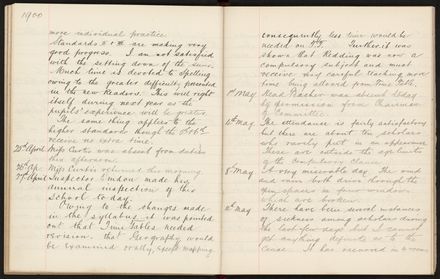 1900
more individual practice.
Standards are making very
good progress. I am not satisfied
with the setting down of the sums.
Much time is devoted to spelling
owing to the greater difficulty presented
in the new Readers. This will right
itself during next year as the
pupils' experience will be greater.
The same thing applies to the
higher standards though the
receive no extra time.
25th April Miss Curtis was absent from duties
this afternoon.
26th Ap. Miss Curtis returned this morning.
27th April Inspector made his
annual inspection of this
school to-day.
Owing to the changes made
in the syllabus it was pointed
out that Time Tables needed
revision. That Geography would
be examined orally, except mapping
consequently less time would be
needed on Further it was
shown that Reading was now a
compulsory subject and must
receive very careful teaching more
time being allowed from Time Table.
1st May Head Teacher was absent today
by permission from Chairman
of Committee.
4th May The attendance is fairly satisfactory
but there are about ten scholars
who rarely put in an appearance
These are outside the age limits
of the Compulsory Clause.
May A very miserable day. The wind
and rain both drive through the
open spaces in four windows
which are broken.
May There have been several instances
of sickness among scholars during
the last few days but I cannot
get anything definite as to the
cause. It has occurred in